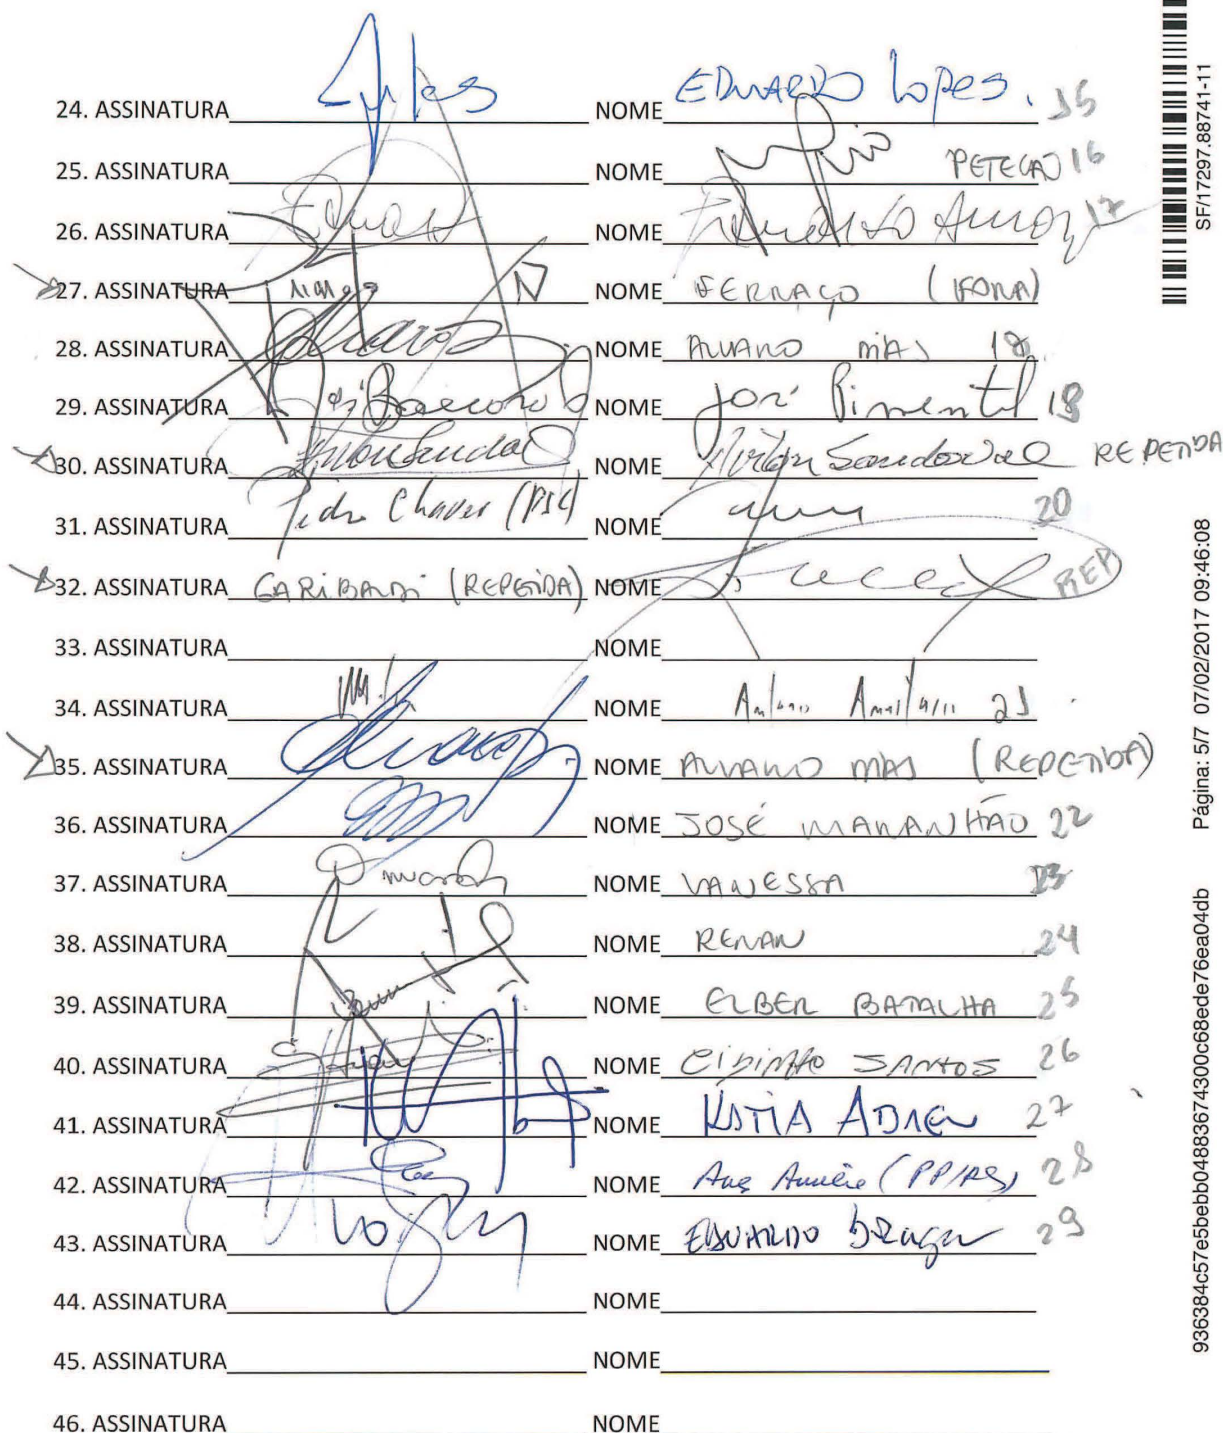 24. ASSINATURA NOME EDUARDO Lopes. 15
25. ASSINATURA NOME PETECÃO 16
26. ASSINATURA NOME 17
27. ASSINATURA NOME FERRAÇO (FORA)
28. ASSINATURA NOME ALVARO DIAS 18
29. ASSINATURA José Pimentel NOME José Pimentel 19
30. ASSINATURA NOME Airton Sandoval REPETIDA
31. ASSINATURA Pedro Chaves (PSC) NOME 20
32. ASSINATURA GARIBALDI (REPETIDA) NOME REP
33. ASSINATURA NOME
34. ASSINATURA NOME Antonio Anastasia 21
35. ASSINATURA NOME ALVARO DIAS (REPETIDA)
36. ASSINATURA NOME JOSÉ MARANHÃO 22
37. ASSINATURA NOME VANESSA 23
38. ASSINATURA NOME RENAN 24
39. ASSINATURA NOME ELBER BATALHA 25
40. ASSINATURA NOME CIDINHO SANTOS 26
41. ASSINATURA NOME KATIA ABREU 27
42. ASSINATURA NOME Ana Amélia (PP/RS) 28
43. ASSINATURA NOME EDUARDO Braga 29
44. ASSINATURA NOME
45. ASSINATURA NOME
46. ASSINATURA NOME
SF/17297.88741-11
Página: 5/7 07/02/2017 09:46:08
936384c57e5bebb04883674300c68ede76ea04db